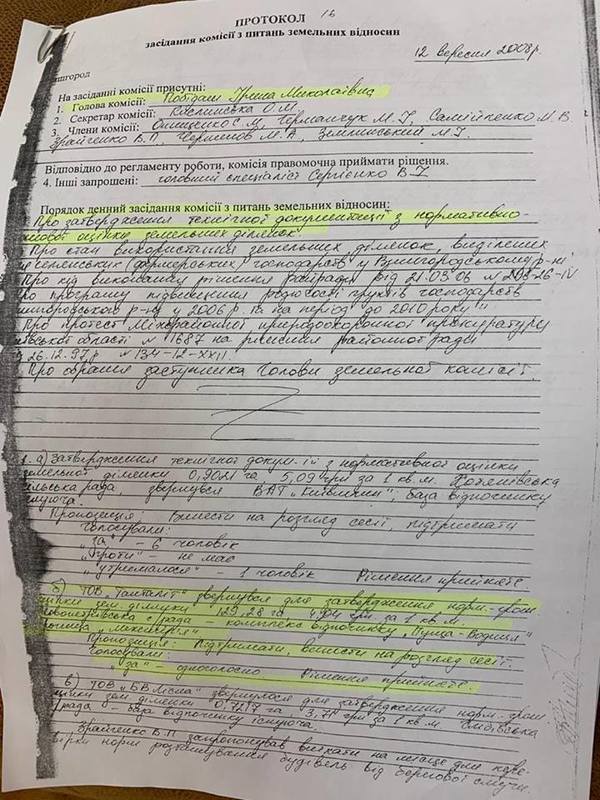 ПРОТОКОЛ 16
засідання комісії з питань земельних відносин
12 вересня 2008р.
ишгород
На засіданні комісії присутні:
1. Голова комісії: Побідаш Ірина Миколаївна
2. Секретар комісії: О.М.
3. Члени комісії: Онищенко С.М, Германчук М.Г, Самійленко М.В
Крайченко В.П, М.А,
Відповідно до регламенту роботи, комісія правомочна приймати рішення.
4. Інші запрошені: головний спеціаліст Сергієнко В.
Порядок денний засідання комісії з питань земельних відносин:
Про затвердження технічної документації з нормативно-
оцінки земельних ділянок.
Про стан використання земельних ділянок, виділених
селянських (фермерських) господарств у Вишгородському р-ні
Про хід виконання рішення від 21.03.06 № 298-26-IV
про програму підвищення родючості ґрунтів господарств
р-ну у 2006 р. та на період до 2010 року"
Про протест Міжрайонної природоохоронної прокуратури
області № 1687 на рішення районної ради
26.12.97р № 134-12-XXII.
Про обрання заступника Голови земельної комісії.
1. а) Затвердження технічної докум-ії з нормативної оцінки
земельної ділянки 0,9021 га, 5,09 грн за 1 кв.м.
рада, звернувся ВАТ база відпочинку
Пропозиція: Винести на розгляд сесії, підтримати
Голосували:
"за" - 6 чоловік
"проти" - не має
"утрималося" - 1 чоловік Рішення прийнято
б) ТОВ "Танталіт" звернувся для затвердження норм.-грош.
оцінки зем. ділянки 129,28 га за 1 кв.м.
с/рада - комплекс відпочинку "Пуща-Водиця"
Пропозиція: Підтримати, винести на розгляд сесії.
Голосували:
"за" - одноголосно Рішення прийнято.
в) ТОВ звернулося для затвердження норм.-грош.
оцінки зем. ділянки 0,7217 га грн за 1 кв.м.
рада - база відпочинку існуюча.
Крайченко В.П запропонував виїхати на місце для
норм розташування будівель від берегової смуги.